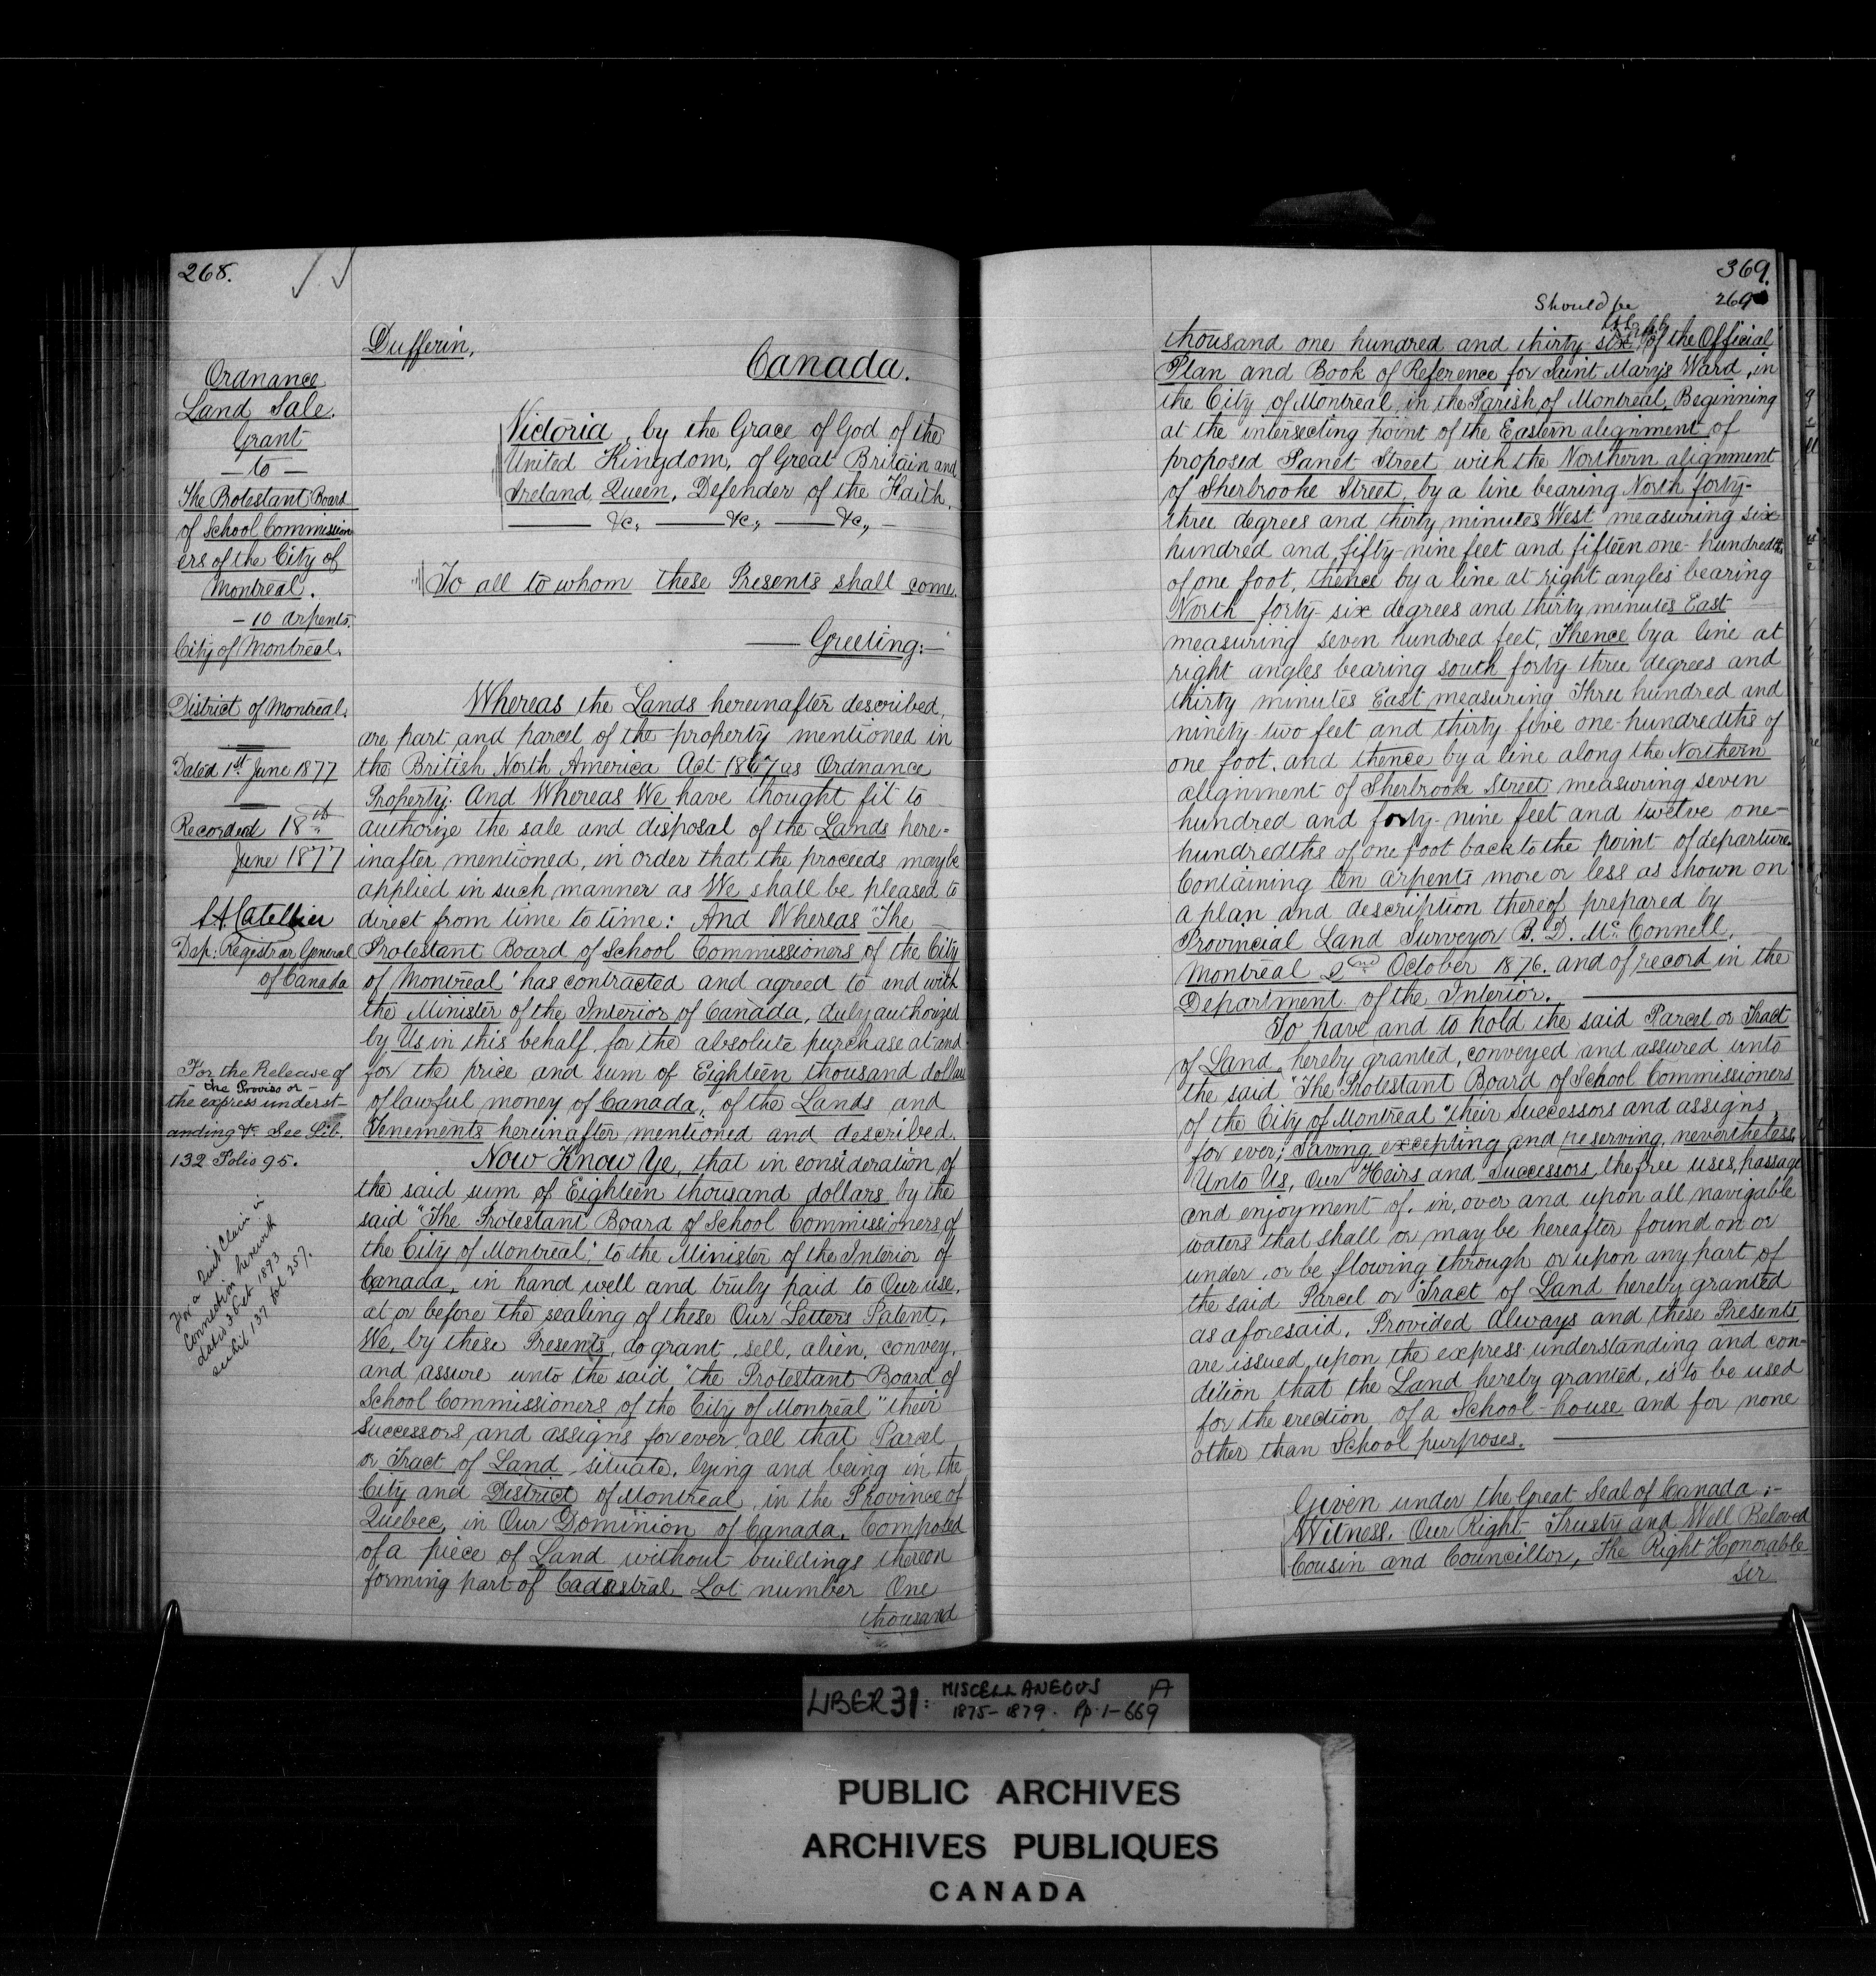 268.
Ordnance
Land Sale.
Grant
— to —
The Protestant Board
of School Commission
ers of the City of
Montreal.
— 10 arpents.
City of Montreal.
District of Montreal.
Dated 1st June 1877
Recorded 18th
June 1877
L. A. Catellier
Dep: Registrar General
of Canada
For the Release of
— the Proviso or —
the express underst-
anding &c. See Lib.
132 Folio 95.
For a Quit Claim in
Connection herewith
dated 3 Oct 1893
see Lib 137 fol 257.
Dufferin,
Canada.
Victoria, by the Grace of God of the
United Kingdom, of Great Britain and
Ireland, Queen, Defender of the Faith,
&c, — &c, — &c, —
To all to whom these Presents shall come,
— Greeting:—
Whereas the Lands hereinafter described,
are part and parcel of the property mentioned in
the British North America Act 1867 as Ordnance
Property: And Whereas We have thought fit to
authorize the sale and disposal of the Lands here-
inafter mentioned, in order that the proceeds may be
applied in such manner as We shall be pleased to
direct from time to time: And Whereas "The
Protestant Board of School Commissioners of the City
of Montreal" has contracted and agreed to and with
the Minister of the Interior of Canada, duly authorized
by Us in this behalf, for the absolute purchase at and
for the price and sum of Eighteen thousand dollars
of lawful money of Canada, of the Lands and
Tenements hereinafter mentioned and described.
Now Know Ye, that in consideration of
the said sum of Eighteen thousand dollars by the
said "The Protestant Board of School Commissioners of
the City of Montreal," to the Minister of the Interior of
Canada, in hand well and truly paid to Our use,
at or before the sealing of these Our Letters Patent,
We, by these Presents, do grant, sell, alien, convey,
and assure unto the said "the Protestant Board of
School Commissioners of the City of Montreal" their
successors and assigns for ever, all that Parcel
or Tract of Land, situate, lying and being in the
City and District of Montreal, in the Province of
Quebec, in Our Dominion of Canada, Composed
of a piece of Land without buildings thereon
forming part of Cadastral Lot number One
thousand
369.
Should be 269
thousand one hundred and thirty six of the Official
Plan and Book of Reference for Saint Mary's Ward, in
the City of Montreal, in the Parish of Montreal, Beginning
at the intersecting point of the Eastern alignment of
proposed Panet Street with the Northern alignment
of Sherbrooke Street, by a line bearing North forty-
three degrees and thirty minutes West measuring six
hundred and fifty-nine feet and fifteen one-hundredths
of one foot, thence by a line at right angles bearing
North forty-six degrees and thirty minutes East
measuring seven hundred feet, Thence by a line at
right angles bearing south forty three degrees and
thirty minutes East measuring Three hundred and
ninety-two feet and thirty five one-hundredths of
one foot, and thence by a line along the Northern
alignment of Sherbrooke Street measuring seven
hundred and forty-nine feet and twelve one-
hundredths of one foot back to the point of departure.
Containing ten arpents more or less as shown on
a plan and description thereof prepared by
Provincial Land Surveyor B. D. McConnell,
Montreal 2nd October 1876. and of record in the
Department of the Interior.
To have and to hold the said Parcel or Tract
of Land, hereby granted, conveyed and assured unto
the said "The Protestant Board of School Commissioners
of the City of Montreal" their successors and assigns
for ever; Saving, excepting and reserving, nevertheless,
Unto Us, Our Heirs and Successors, the free uses, passage
and enjoyment of, in, over and upon all navigable
waters that shall or may be hereafter found on or
under, or be flowing through or upon any part of
the said Parcel or Tract of Land hereby granted
as aforesaid, Provided Always and these Presents
are issued upon the express understanding and con-
dition that the Land hereby granted, is to be used
for the erection of a School-house and for none
other than School purposes.
Given under the Great Seal of Canada:—
Witness, Our Right Trusty and Well Beloved
Cousin and Councillor, The Right Honorable
Sir
LIBER 31: MISCELLANEOUS A
1875-1879. Pp. 1-669
PUBLIC ARCHIVES
ARCHIVES PUBLIQUES
CANADA